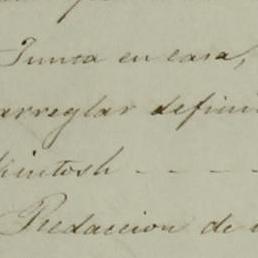 Junta en casa,
arreglar defini
kintosh - - - -
Redaccion de